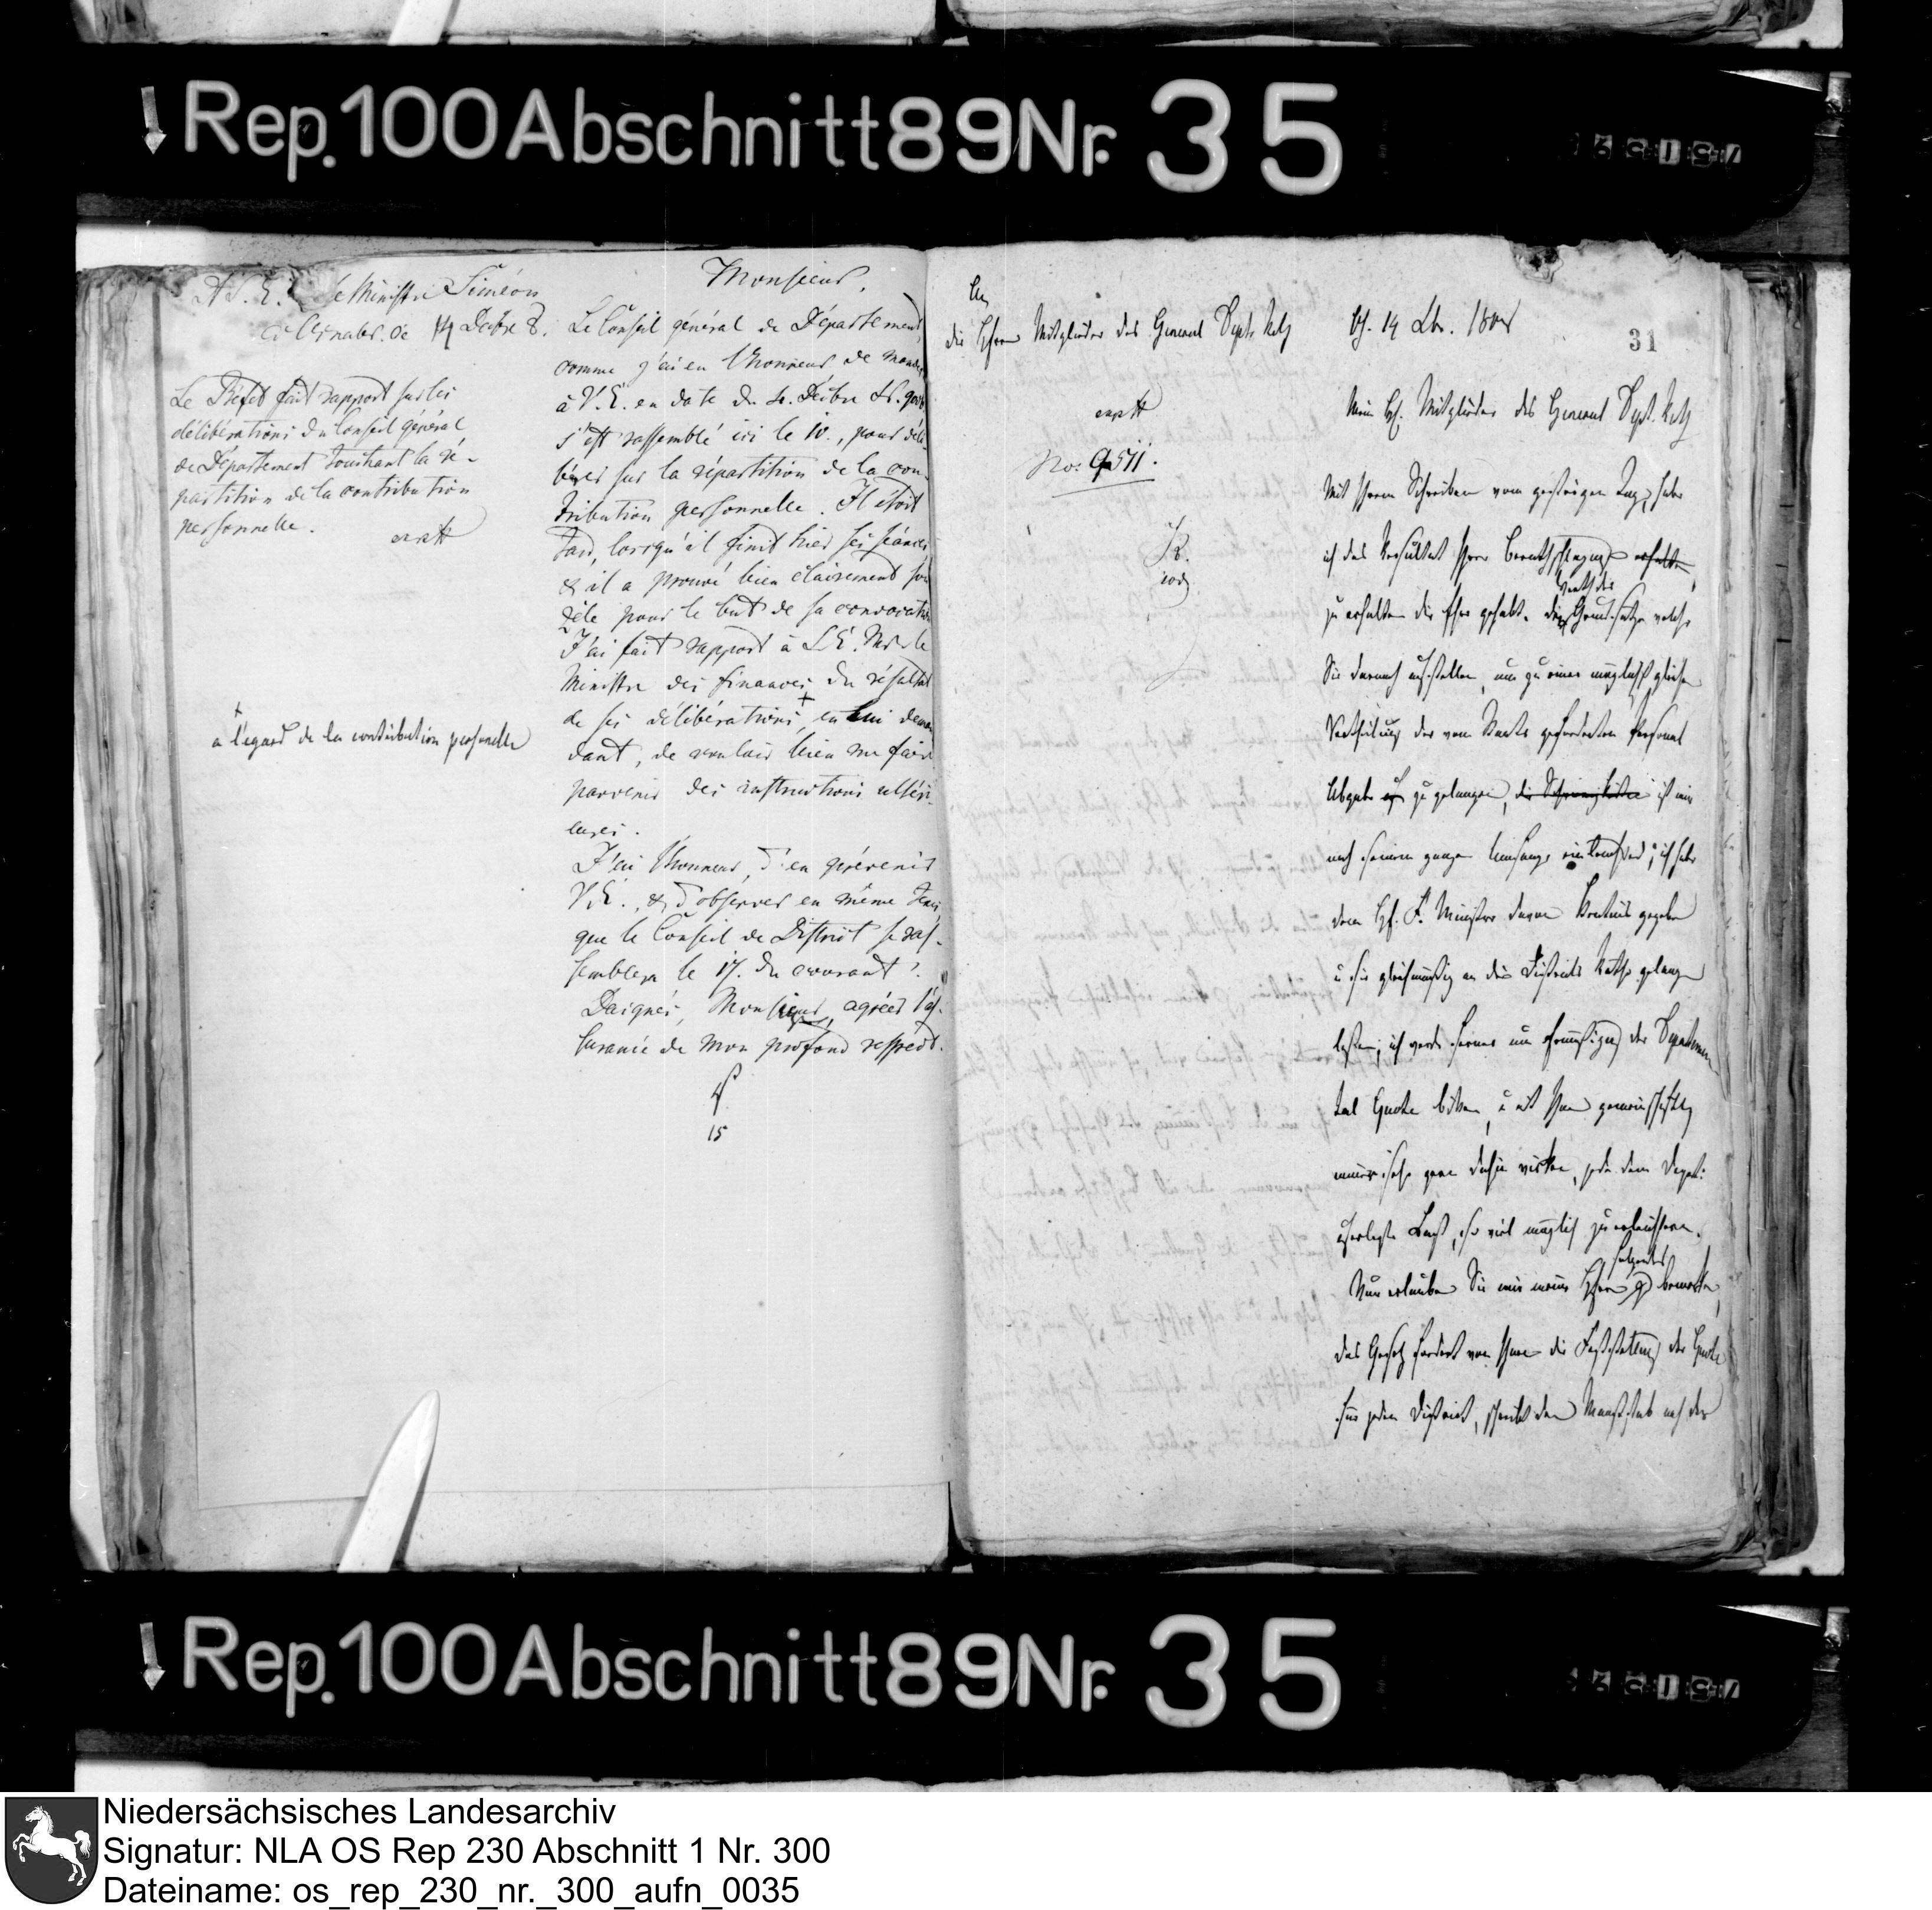 Rep. 100 Abschnitt 89 Nr. 35
A S. E. le Ministre Siméon
Osnabr. de 14 Decbre 8.
Le Prefet fait rapport sur les
délibérations du Conseil général
de Département touchant la ré-
partition de la contribution
personnelle.
+
a l'egard de la contribution personelle
Monsieur.
Le Conseil général de Département
comme j'ai eu l'honneur de mander
à V. E. en date du
s'est rassemblé ici le 10., pour déli-
bérer sur la répartition de la con-
tribution personnelle. Il étoit
tard, lorsqu'il finit hier ses séances
& il a prouvé bien clairement son
zèle pour le but de sa convocation
J'ai fait rapport à S. E. Mr. le
Ministre des finances du résultat
de ses délibérations, + en lui deman-
dant, de vouloir bien me faire
parvenir des instructions ultéri-
eures.
J'ai l'honneur, d'en prévenir
V. E., & d'observer en même tems
que le Conseil de District se ras-
semblera le 17. du courant.
Daignés, Monsieur, agréer l'as-
surance de mon profond respect.
15
An
die Herren Mitglieder des General Dept. Raths
14 Dbr. 1808
31
No: 9511.
Meine Herren Mitglieder des General Dept. Raths
Mit Ihrem Schreiben vom gestrigen Tage, habe
ich das Resultat Ihrer Berathschlagung erhalten
zu erhalten die Ehre gehabt. die Grundsätze welche
Sie darnach aufstellen, um zu einer möglichst gleichen
Vertheilung der vom Staate geforderten Personal
Abgabe zu gelangen, ist mir
nach seinem ganzen Umfange einleuchtend; ich habe
dem H. F. Minister davon Kentnis gegeben
u. sie gleichmäßig an die Districts Räthe gelangen
lassen; ich werde ferner um Ermäßigung der Departemen
tal Quote bitten, u. mit Ihnen gemeinschaftlich
gern dahin wirken, jede dem Depart.
auferlegte Last, so viel möglich zu erleichtern.
folgendes
Nun erlauben Sie mir meine Herren zu bemerken,
das Gesetz fordert von Ihnen die Feststellung der Quote
für jeden District, schreibt den Maaßstab nach der
Rep. 100 Abschnitt 89 Nr. 35
Niedersächsisches Landesarchiv
Signatur: NLA OS Rep 230 Abschnitt 1 Nr. 300
Dateiname: os_rep_230_nr._300_aufn_0035